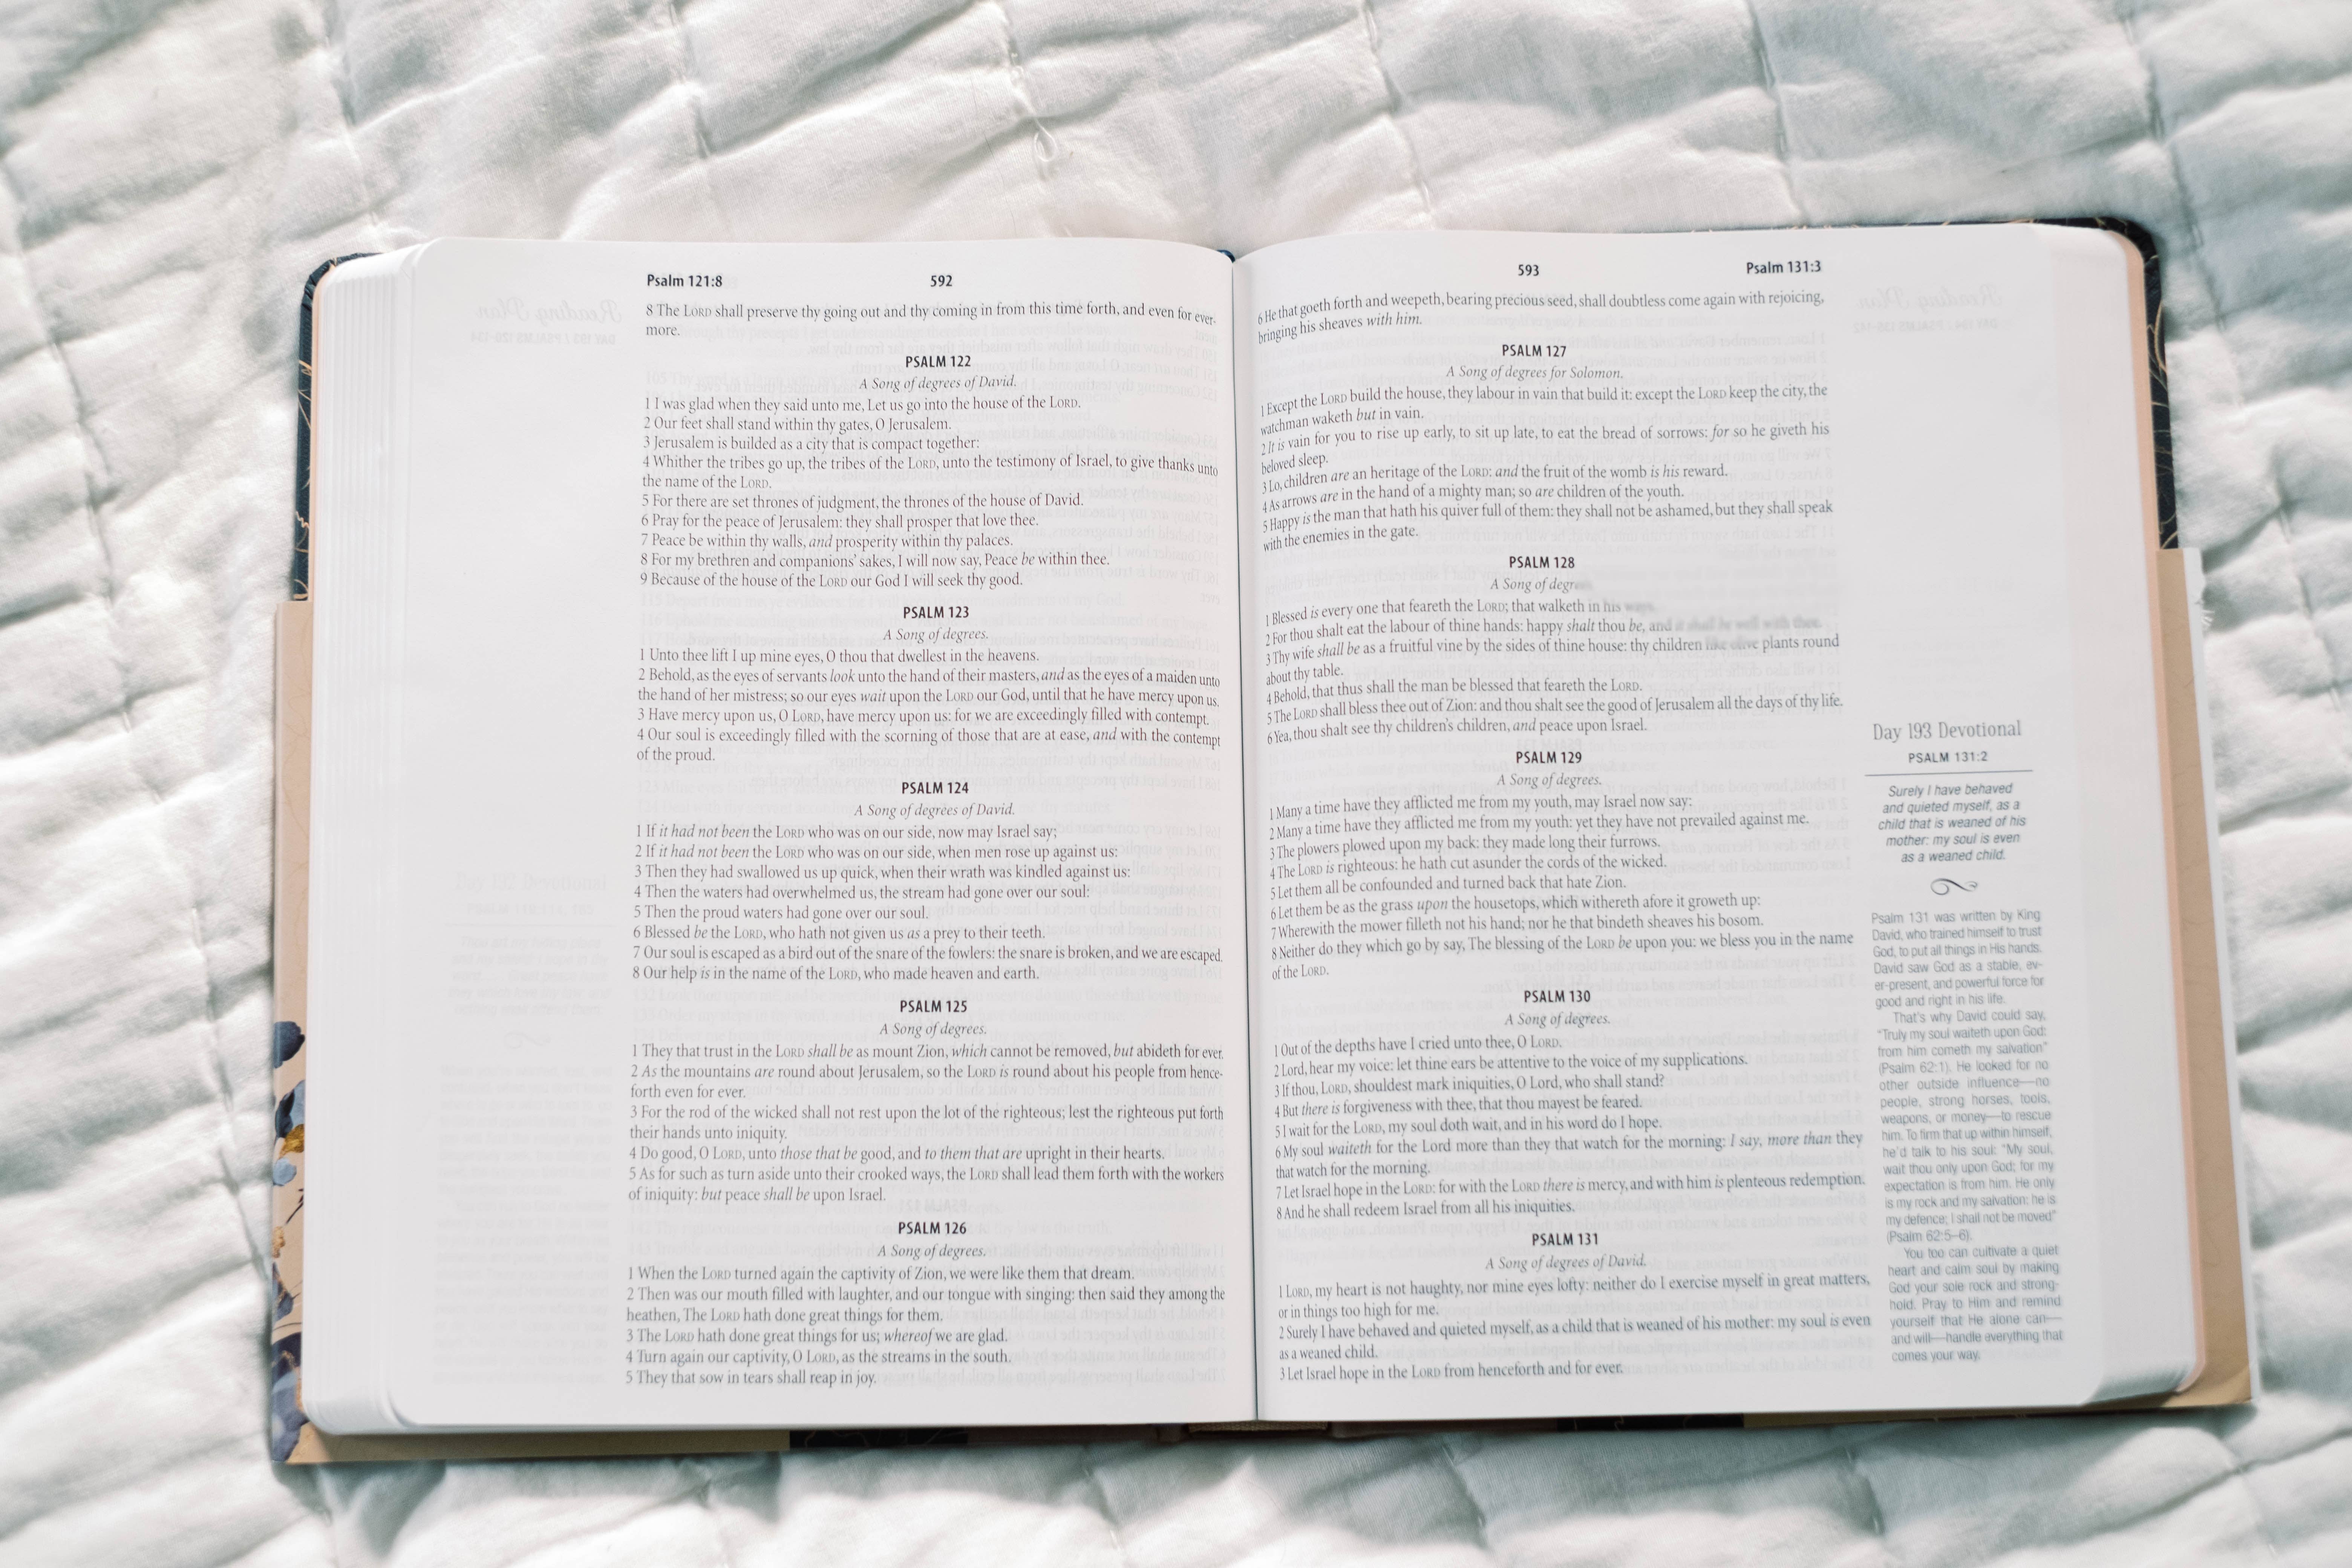 Psalm 121:8 592
8 The LORD shall preserve thy going out and thy coming in from this time forth, and even for ever-
more.
PSALM 122
A Song of degrees of David.
1 I was glad when they said unto me, Let us go into the house of the LORD.
2 Our feet shall stand within thy gates, O Jerusalem.
3 Jerusalem is builded as a city that is compact together:
4 Whither the tribes go up, the tribes of the LORD, unto the testimony of Israel, to give thanks unto
the name of the LORD.
5 For there are set thrones of judgment, the thrones of the house of David.
6 Pray for the peace of Jerusalem: they shall prosper that love thee.
7 Peace be within thy walls, and prosperity within thy palaces.
8 For my brethren and companions' sakes, I will now say, Peace be within thee.
9 Because of the house of the LORD our God I will seek thy good.
PSALM 123
A Song of degrees.
1 Unto thee lift I up mine eyes, O thou that dwellest in the heavens.
2 Behold, as the eyes of servants look unto the hand of their masters, and as the eyes of a maiden unto
the hand of her mistress; so our eyes wait upon the LORD our God, until that he have mercy upon us.
3 Have mercy upon us, O LORD, have mercy upon us: for we are exceedingly filled with contempt.
4 Our soul is exceedingly filled with the scorning of those that are at ease, and with the contempt
of the proud.
PSALM 124
A Song of degrees of David.
1 If it had not been the LORD who was on our side, now may Israel say;
2 If it had not been the LORD who was on our side, when men rose up against us:
3 Then they had swallowed us up quick, when their wrath was kindled against us:
4 Then the waters had overwhelmed us, the stream had gone over our soul:
5 Then the proud waters had gone over our soul.
6 Blessed be the LORD, who hath not given us as a prey to their teeth.
7 Our soul is escaped as a bird out of the snare of the fowlers: the snare is broken, and we are escaped.
8 Our help is in the name of the LORD, who made heaven and earth.
PSALM 125
A Song of degrees.
1 They that trust in the LORD shall be as mount Zion, which cannot be removed, but abideth for ever.
2 As the mountains are round about Jerusalem, so the LORD is round about his people from hence-
forth even for ever.
3 For the rod of the wicked shall not rest upon the lot of the righteous; lest the righteous put forth
their hands unto iniquity.
4 Do good, O LORD, unto those that be good, and to them that are upright in their hearts.
5 As for such as turn aside unto their crooked ways, the LORD shall lead them forth with the workers
of iniquity: but peace shall be upon Israel.
PSALM 126
A Song of degrees.
1 When the LORD turned again the captivity of Zion, we were like them that dream.
2 Then was our mouth filled with laughter, and our tongue with singing: then said they among the
heathen, The LORD hath done great things for them.
3 The LORD hath done great things for us; whereof we are glad.
4 Turn again our captivity, O LORD, as the streams in the south.
5 They that sow in tears shall reap in joy.
593 Psalm 131:3
6 He that goeth forth and weepeth, bearing precious seed, shall doubtless come again with rejoicing,
bringing his sheaves with him.
PSALM 127
A Song of degrees for Solomon.
1 Except the LORD build the house, they labour in vain that build it: except the LORD keep the city, the
watchman waketh but in vain.
2 It is vain for you to rise up early, to sit up late, to eat the bread of sorrows: for so he giveth his
beloved sleep.
3 Lo, children are an heritage of the LORD: and the fruit of the womb is his reward.
4 As arrows are in the hand of a mighty man; so are children of the youth.
5 Happy is the man that hath his quiver full of them: they shall not be ashamed, but they shall speak
with the enemies in the gate.
PSALM 128
A Song of degrees.
1 Blessed is every one that feareth the LORD; that walketh in his ways.
2 For thou shalt eat the labour of thine hands: happy shalt thou be, and it shall be well with thee.
3 Thy wife shall be as a fruitful vine by the sides of thine house: thy children like olive plants round
about thy table.
4 Behold, that thus shall the man be blessed that feareth the LORD.
5 The LORD shall bless thee out of Zion: and thou shalt see the good of Jerusalem all the days of thy life.
6 Yea, thou shalt see thy children's children, and peace upon Israel.
PSALM 129
A Song of degrees.
1 Many a time have they afflicted me from my youth, may Israel now say:
2 Many a time have they afflicted me from my youth: yet they have not prevailed against me.
3 The plowers plowed upon my back: they made long their furrows.
4 The LORD is righteous: he hath cut asunder the cords of the wicked.
5 Let them all be confounded and turned back that hate Zion.
6 Let them be as the grass upon the housetops, which withereth afore it groweth up:
7 Wherewith the mower filleth not his hand; nor he that bindeth sheaves his bosom.
8 Neither do they which go by say, The blessing of the LORD be upon you: we bless you in the name
of the LORD.
PSALM 130
A Song of degrees.
1 Out of the depths have I cried unto thee, O LORD.
2 Lord, hear my voice: let thine ears be attentive to the voice of my supplications.
3 If thou, LORD, shouldest mark iniquities, O Lord, who shall stand?
4 But there is forgiveness with thee, that thou mayest be feared.
5 I wait for the LORD, my soul doth wait, and in his word do I hope.
6 My soul waiteth for the Lord more than they that watch for the morning: I say, more than they
that watch for the morning.
7 Let Israel hope in the LORD: for with the LORD there is mercy, and with him is plenteous redemption.
8 And he shall redeem Israel from all his iniquities.
PSALM 131
A Song of degrees of David.
1 LORD, my heart is not haughty, nor mine eyes lofty: neither do I exercise myself in great matters,
or in things too high for me.
2 Surely I have behaved and quieted myself, as a child that is weaned of his mother: my soul is even
as a weaned child.
3 Let Israel hope in the LORD from henceforth and for ever.
Day 193 Devotional
PSALM 131:2
Surely I have behaved
and quieted myself, as a
child that is weaned of his
mother: my soul is even
as a weaned child.
Psalm 131 was written by King
David, who trained himself to trust
God, to put all things in His hands.
David saw God as a stable, ev-
er-present, and powerful force for
good and right in his life.
That's why David could say,
"Truly my soul waiteth upon God:
from him cometh my salvation"
(Psalm 62:1). He looked for no
other outside influence—no
people, strong horses, tools,
weapons, or money—to rescue
him. To firm that up within himself,
he'd talk to his soul: "My soul,
wait thou only upon God; for my
expectation is from him. He only
is my rock and my salvation: he is
my defence; I shall not be moved"
(Psalm 62:5–6).
You too can cultivate a quiet
heart and calm soul by making
God your sole rock and strong-
hold. Pray to Him and remind
yourself that He alone can—
and will—handle everything that
comes your way.